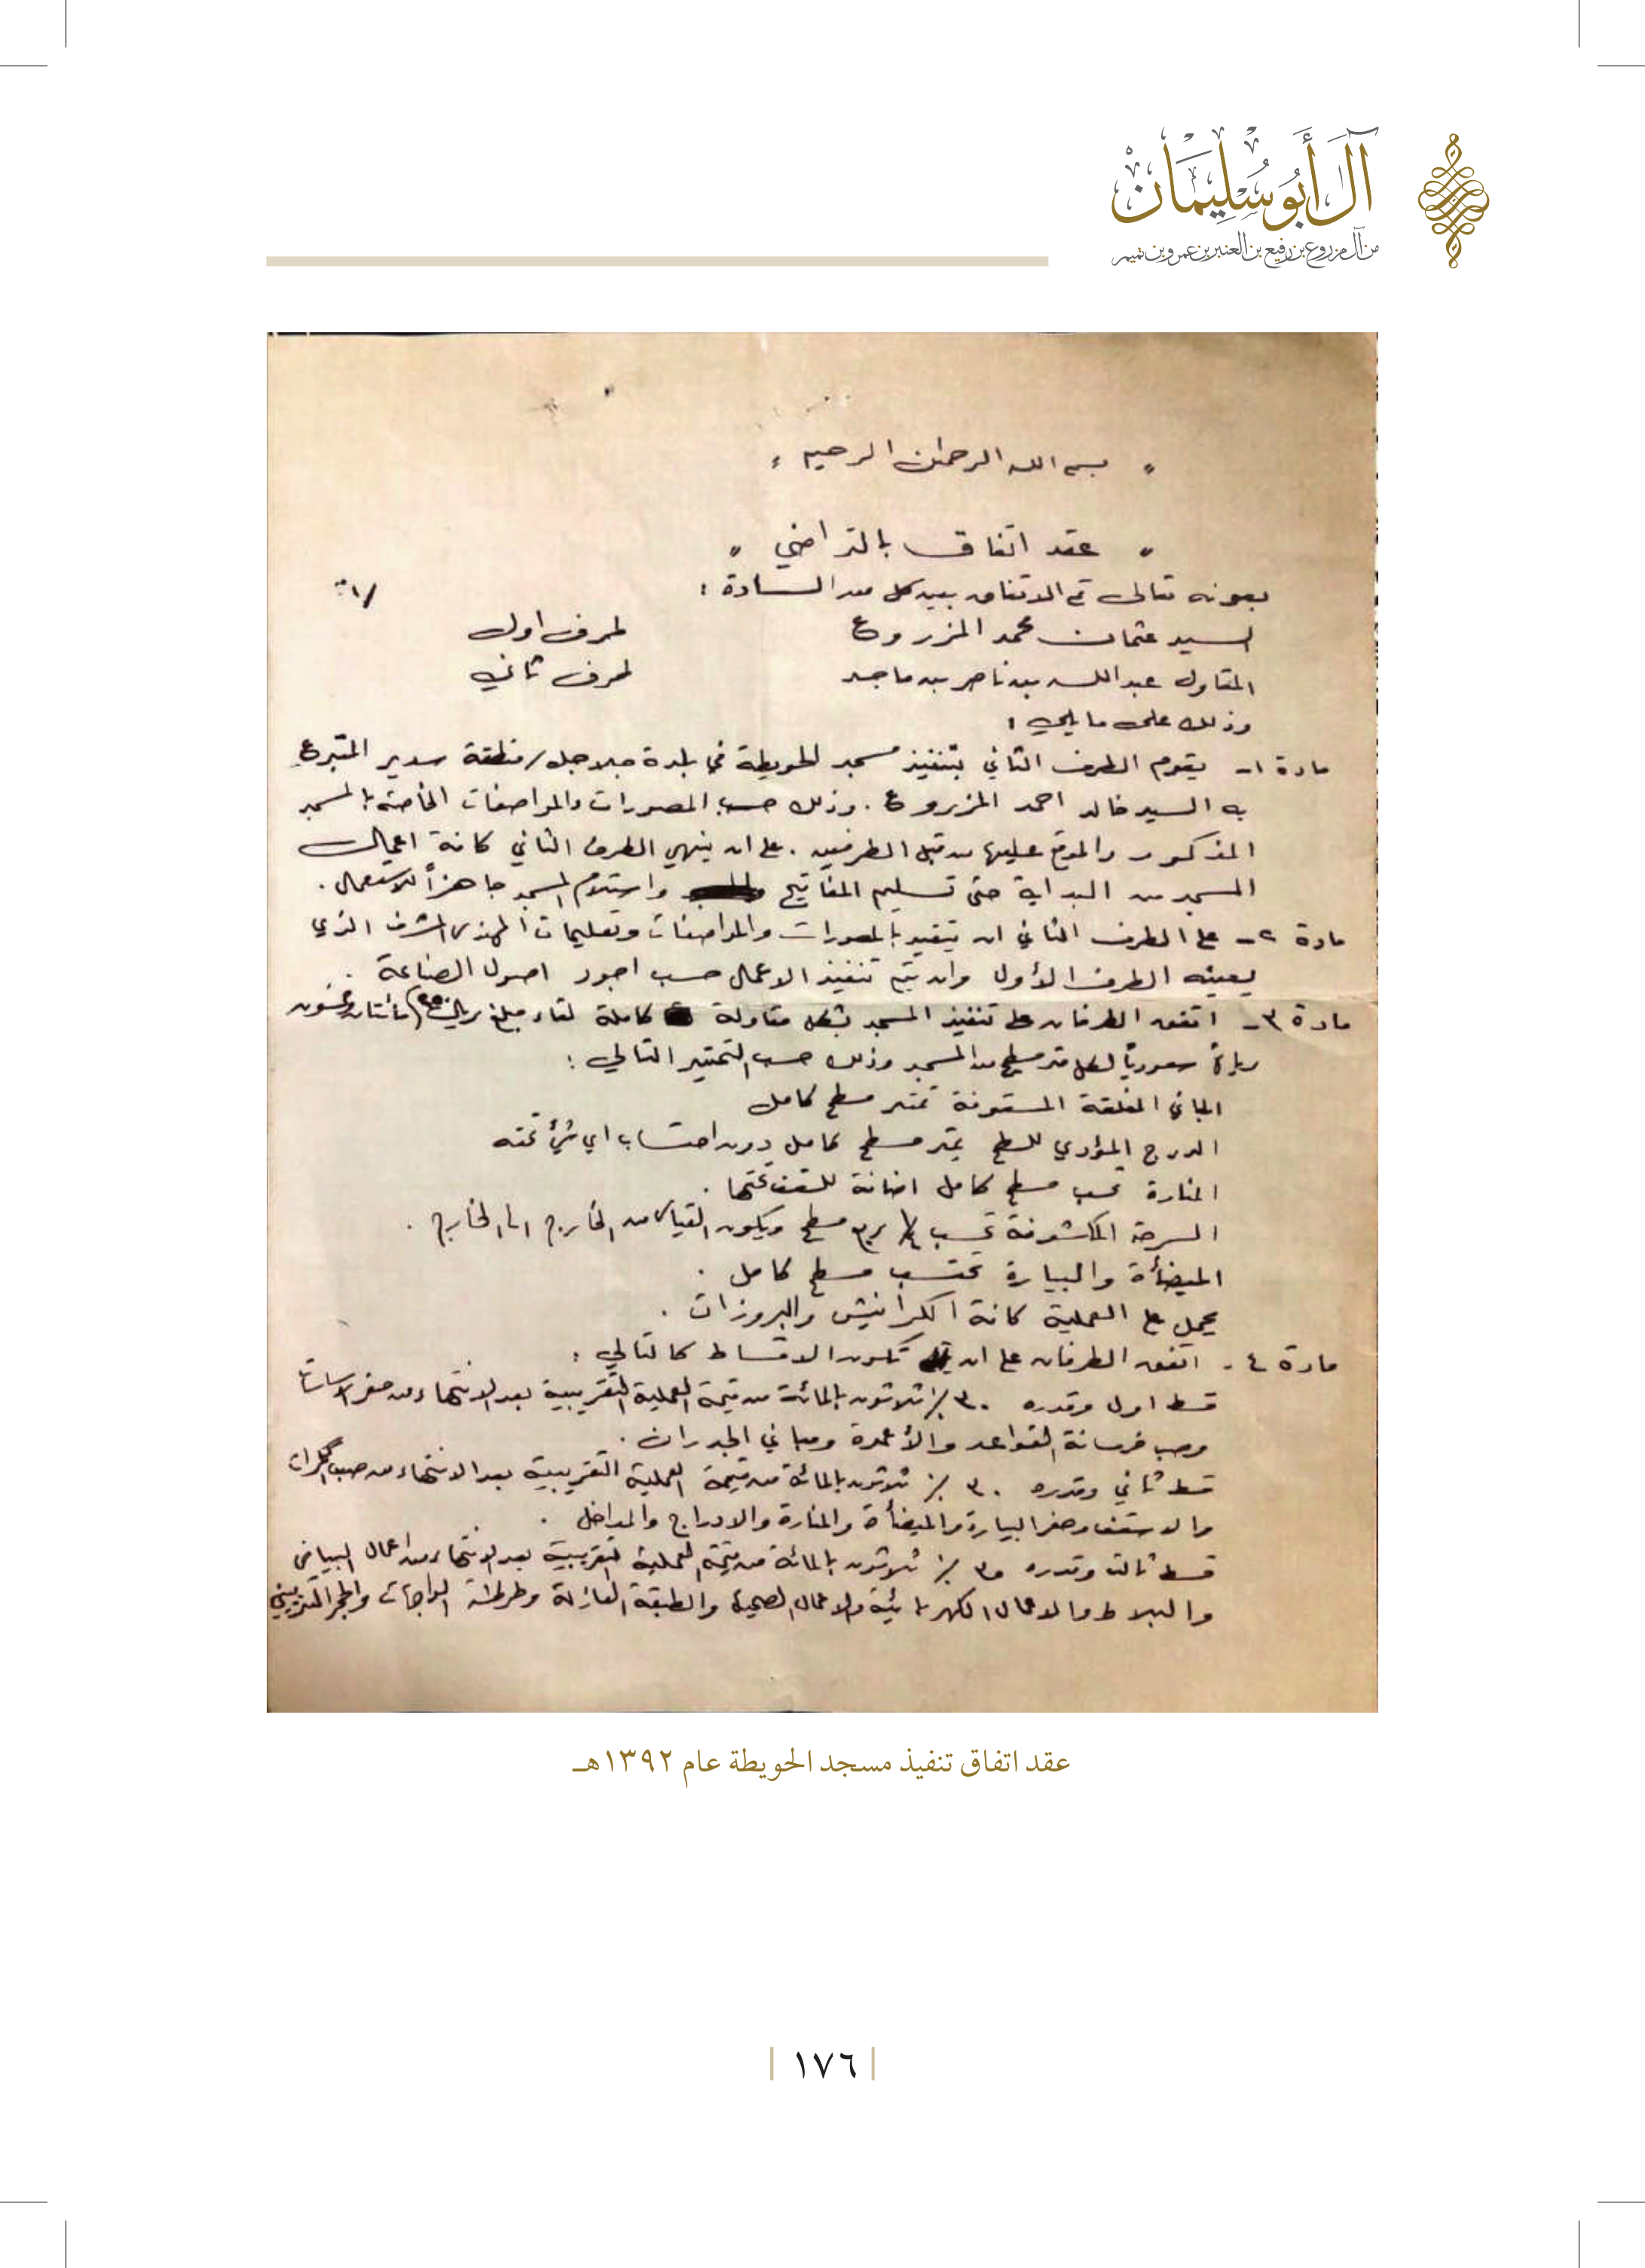 آل أبو سليمان
من آل مزروع بن رفيع بن العنبر بن عمرو بن تميم
" بسم الله الرحمن الرحيم "
" عقد اتفاق بالتراضي "
بعونه تعالى تم الاتفاق بين كل من السادة :
السيد عثمان محمد المزروع طرف اول
المقاول عبدالله بن ناصر بن ماجد طرف ثاني
وذلك على مايلي :
مادة ١- يقوم الطرف الثاني بتنفيذ مسجد الحويطة في بلدة جلاجل / منطقة سدير المتبرع
به السيد خالد احمد المزروع . وذلك حسب المصورات والمواصفات الخاصة بالمسجد
المذكور والموقع عليها من قبل الطرفين . على ان ينهي الطرف الثاني كافة اعمال
المسجد من البداية حتى تسليم المفاتيح واستلام المسجد جاهزاً للاستعمال .
مادة ٢- على الطرف الثاني ان يتقيد بالمصورات والمواصفات وتعليمات المهندس المشرف الذي
يعينه الطرف الأول وان يتم تنفيذ الاعمال حسب اجود اصول الصناعة .
مادة ٣- اتفق الطرفان على تنفيذ المسجد بشكل مقاولة كاملة لقاء مبلغ ريال (٢٥٠) مائتان وخمسون
ريالاً سعودياً لكل متر مسطح من المسجد وذلك حسب التمتير التالي :
المباني المغلقة المسقوفة تمتر مسطح كامل
الدرج المؤدي للسطح يمتر مسطح كامل دون احتساب اي شيء تحته
المنارة تحسب مسطح كامل اضافة للسقف تحتها .
السرحة المكشوفة تحسب ١/٤ ربع مسطح ويكون القياس من الخارج الى الخارج .
الميضأة والبيارة تحتسب مسطح كامل .
يحمل على العملية كافة الكرانيش والبروزات .
مادة ٤- اتفق الطرفان على ان تكون الاقساط كالتالي :
قسط اول وقدره ٣٠ ٪ ثلاثون بالمائة من قيمة العملية التقريبية بعد الانتهاء من حفر الاساسات
وصب خرسانة القواعد والأعمدة ومباني الجدران .
قسط ثاني وقدره ٣٠ ٪ ثلاثون بالمائة من قيمة العملية التقريبية بعد الانتهاء من صب الكمرات
والاسقف وحفر البيارة والميضأة والمنارة والادراج والمداخل .
قسط ثالث وقدره ٣٠ ٪ ثلاثون بالمائة من قيمة العملية التقريبية بعد الانتهاء من اعمال البياض
والبلاط والاعمال الكهربائية والاعمال الصحية والطبقة العازلة وطرطشة الواجهات والحجر التزييني
عقد اتفاق تنفيذ مسجد الحويطة عام ١٣٩٢هـ
١٧٦